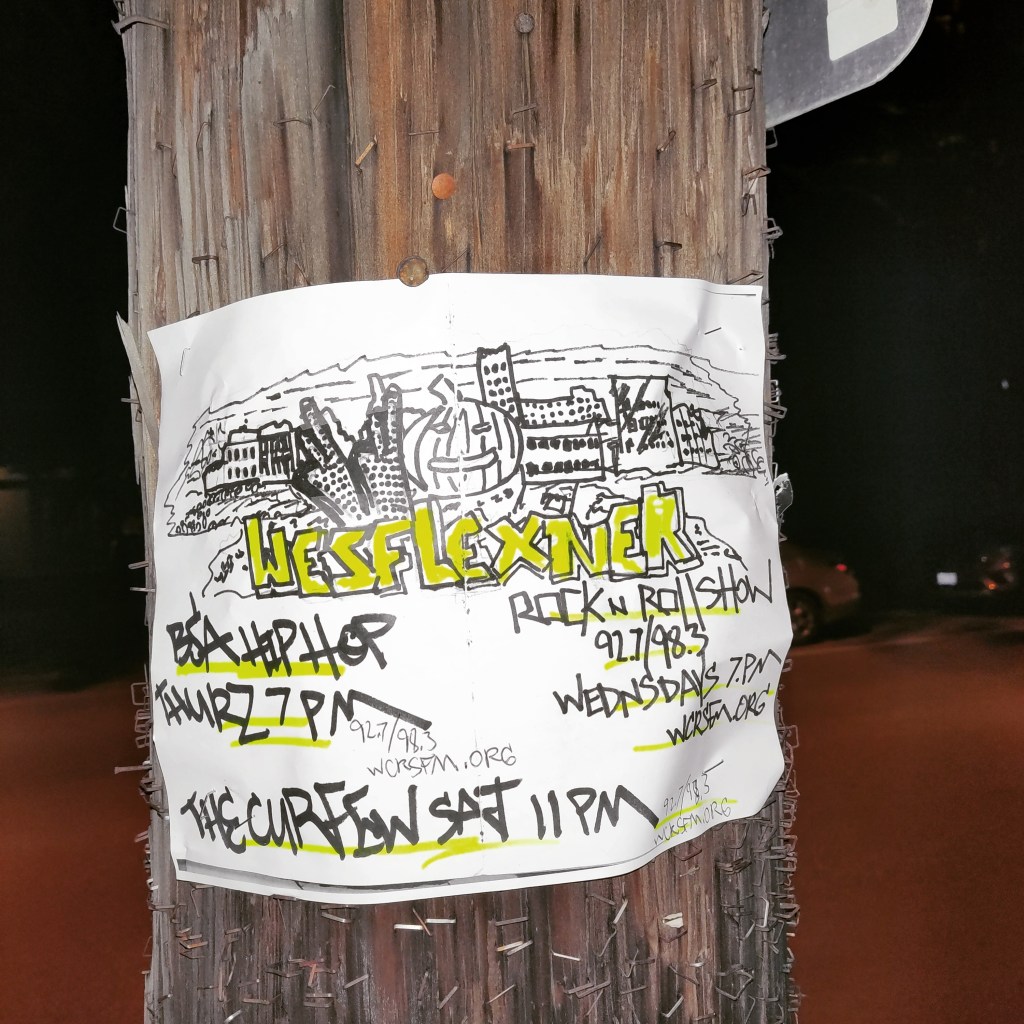 WESFLEXNER
ROCK N ROLL SHOW
92.7/98.3
WEDNSDAYS 7.PM
WCRSFM.ORG
BSA HIP HOP
THURZ 7 PM
92.7/98.3
WCRSFM.ORG
THE CURFEW SAT 11 PM
92.7/98.3
WCRSFM.ORG